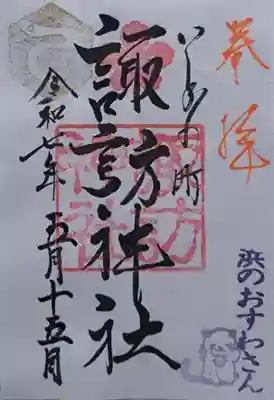 奉拝
諏訪神社
令和七年五月十五日
浜のおすわさん